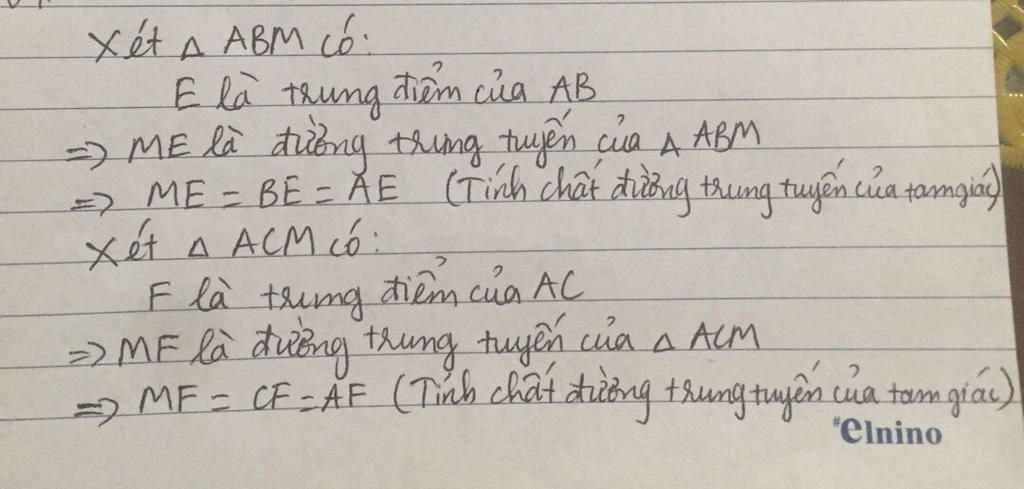 Xét Δ ABM có:
E là trung điểm của AB
=> ME là đường trung tuyến của Δ ABM
=> ME = BE = AE (Tính chất đường trung tuyến của tam giác)
Xét Δ ACM có:
F là trung điểm của AC
=> MF là đường trung tuyến của Δ ACM
=> MF = CF = AF (Tính chất đường trung tuyến của tam giác)
elnino